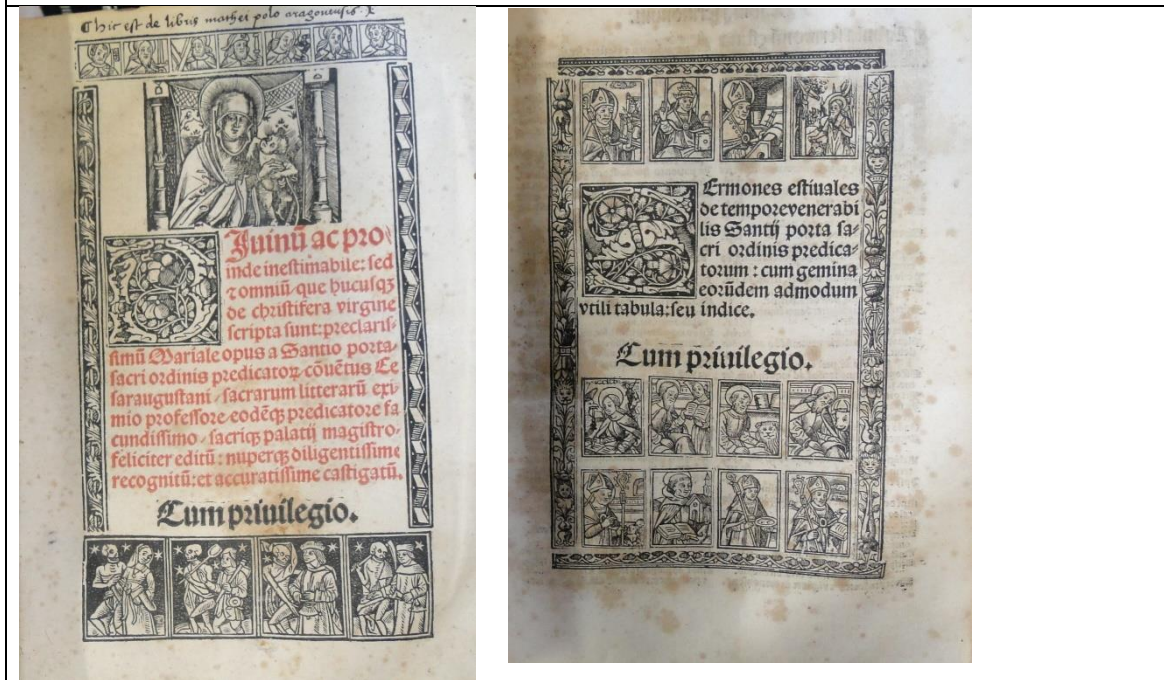 hic est de libris mathei polo aragonensis
DJuinũ ac pro
inde inestimabile: sed
⁊ omniũ que hucusqꝫ
de christifera virgine
scripta sunt: preclaris-
simũ Mariale opus a Santio porta-
sacri ordinis predicatoꝝ cõuẽtus Ce
saraugustani sacrarum litterarũ exi-
mio professore eodẽqꝫ predicatore fa
cundissimo sacriqꝫ palatij magistro-
feliciter editũ: nuperqꝫ diligentissime
recognitũ: et accuratissime castigatũ.
Cum priuilegio.
SErmones estiuales
de tempore venerabi
lis Santij porta sa-
cri ordinis predica-
torum: cum gemina
eorũdem admodum
vtili tabula: seu indice.
Cum priuilegio.